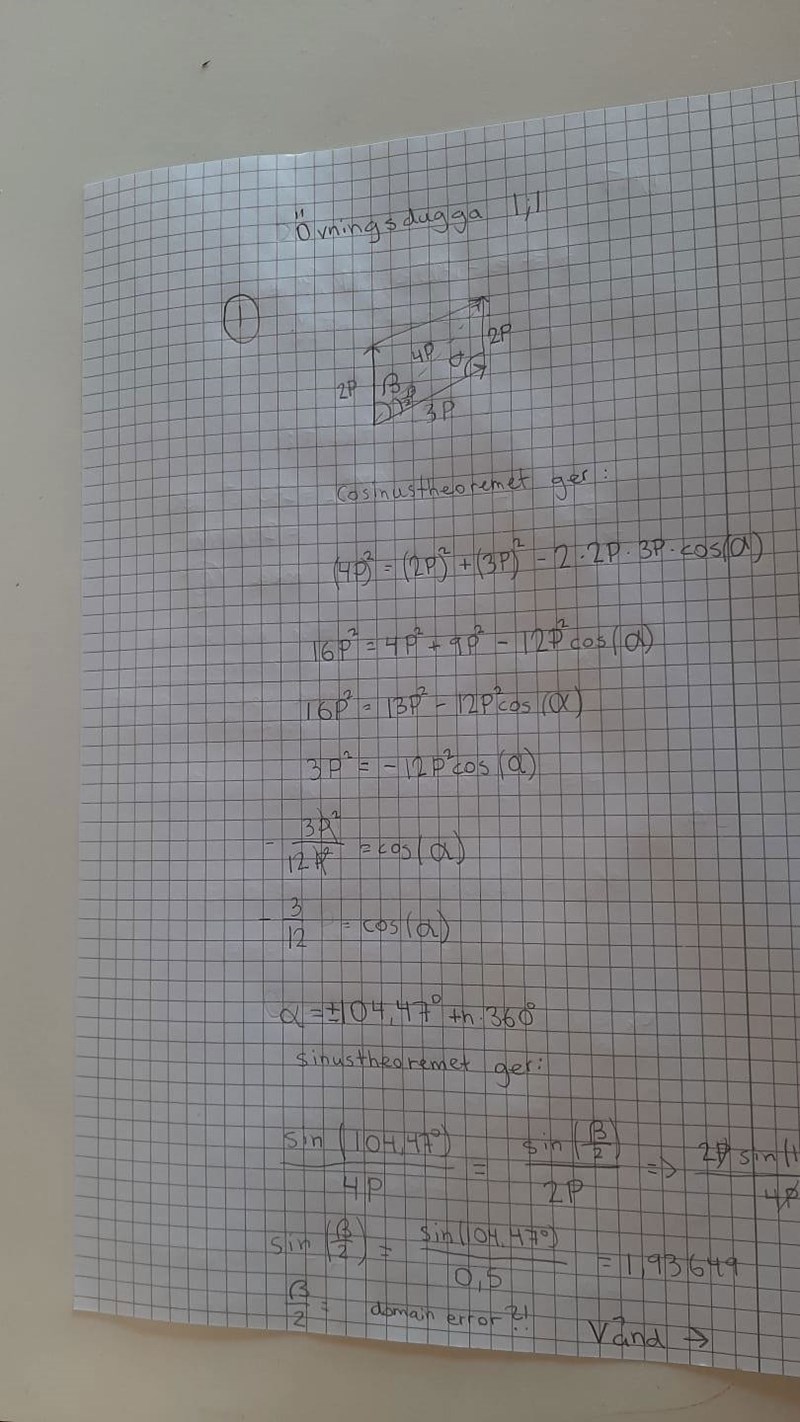 Övningsdugga 1,1
①
2P
4P
2P
α
β
3P
Cosinustheoremet ger:
(4P)² = (2P)² + (3P)² - 2·2P·3P·cos(α)
16P² = 4P² + 9P² - 12P² cos(α)
16P² = 13P² - 12P² cos(α)
3P² = -12P² cos(α)
- 3P²/12P² = cos(α)
- 3/12 = cos(α)
α = ±104,47° + n·360°
Sinustheoremet ger:
sin(104,47°)/4P = sin(β/2)/2P => 2P sin(1/4P
sin(β/2) = sin(104,47°)/0,5 = 1,93649
β/2 = domain error?!
Vänd →